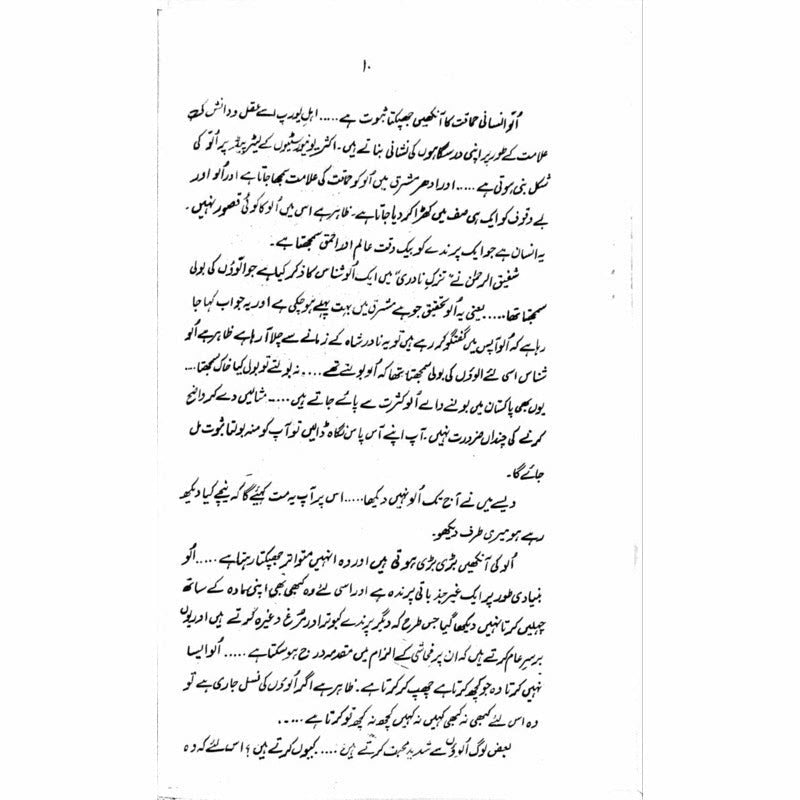 ۱۰
اُلّو انسانی حماقت کا آنکھیں جھپکتا ثبوت ہے ..... اہلِ یورپ اسے عقل و دانش کی
علامت کے طور پر اپنی درسگاہوں کی نشانی بناتے ہیں۔ اکثر یونیورسٹیوں کے لیٹر پیڈز پر اُلّو کی
شکل بنی ہوتی ہے ..... اور ادھر مشرق میں اُلو کو حماقت کی علامت سمجھا جاتا ہے اور اُلو اور
بے وقوف کو ایک ہی صف میں کھڑا کر دیا جاتا ہے۔ ظاہر ہے اس میں اُلو کا کوئی قصور نہیں۔
یہ انسان ہے جو ایک پرندے کو بیک وقت عالم اور احمق سمجھتا ہے۔
شفیق الرحمٰن نے "تزکِ نادری" میں ایک اُلو شناس کا ذکر کیا ہے جو اُلوؤں کی بولی
سمجھتا تھا ..... یعنی یہ اُلو تحقیق جو ہے مشرق میں بہت پہلے ہو چکی ہے اور یہ جو اب کہا جا
رہا ہے کہ اُلو آپس میں گفتگو کر رہے ہیں تو یہ نادر شاہ کے زمانے سے چلا آ رہا ہے ظاہر ہے اُلو
شناس اسی لئے اُلوؤں کی بولی سمجھتا تھا کہ اُلو بولتے تھے .... نہ بولتے تو بولی کیا خاک سمجھتا ....
یوں بھی پاکستان میں بولنے والے اُلو کثرت سے پائے جاتے ہیں ..... مثالیں دے کر واضح
کرنے کی چنداں ضرورت نہیں۔ آپ اپنے آس پاس نگاہ ڈالیں تو آپ کو منہ بولتا ثبوت مل
جائے گا۔
ویسے میں نے آج تک اُلو نہیں دیکھا ..... اس پر آپ یہ مت کہئیے گا کہ نیچے کیا دیکھ
رہے ہو میری طرف دیکھو۔
اُلو کی آنکھیں بڑی بڑی ہوتی ہیں اور وہ انہیں متواتر جھپکتا رہتا ہے ..... اُلو
بنیادی طور پر ایک غیر جذباتی پرندہ ہے اور اسی لئے وہ کبھی بھی اپنی مادہ کے ساتھ
چہلیں کرتا نہیں دیکھا گیا جس طرح کہ دیگر پرندے کبوتر اور مُرغ وغیرہ کرتے ہیں اور یوں
برسرِ عام کرتے ہیں کہ ان پر فحاشی کے الزام میں مقدمہ درج ہو سکتا ہے ..... اُلو ایسا
نہیں کرتا وہ جو کچھ کرتا ہے چھپ کر کرتا ہے۔ ظاہر ہے اگر اُلوؤں کی نسل جاری ہے تو
وہ اس لئے کبھی نہ کبھی کہیں نہ کہیں کچھ نہ کچھ تو کرتا ہے .....
بعض لوگ اُلوؤں سے شدید محبت کرتے ہیں ..... کیوں کرتے ہیں؟ اس لئے کہ وہ